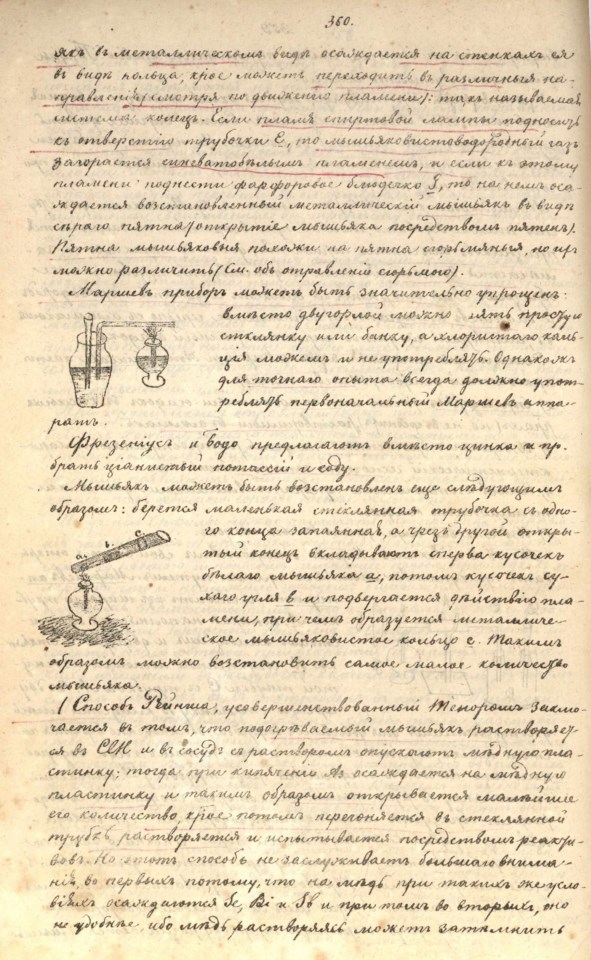 360.
якъ въ металлическомъ видѣ осаждается на стѣнкахъ ея
въ видѣ кольца, крое можетъ переходить въ различныя на-
правленія (смотря по движенію пламени): такъ называемая
метода колецъ. Если пламя спиртовой лампы подносить
къ отверстію трубочки E, то мышьяковистоводородный газъ
загорается синеватобѣлымъ пламенемъ, и если къ этому
пламени поднести фарфоровое блюдечко, то на немъ оса-
ждается возстановленный металлическій мышьякъ въ видѣ
сѣраго пятна (открытіе мышьяка посредствомъ пятенъ).
Пятна мышьяковыя похожи на пятна сюрьмяныя, но ихъ
можно различить (См. объ отравленіи сюрьмою).
Маршевъ приборъ можетъ быть значительно упрощенъ:
вмѣсто двугорлой можно взять простую
стклянку или банку, а хлористаго каль-
ція можемъ и не употреблять. Однакожъ
для точнаго опыта всегда должно упот-
реблять первоначальный Маршевъ аппа-
ратъ.
Фрезеніусъ и Бодо предлагаютъ вмѣсто цинка
брать ціанистый потассій и соду.
Мышьякъ можетъ быть возстановленъ еще слѣдующимъ
образомъ: берется маленькая стеклянная трубочка съ одно-
го конца запаянная, а чрезъ другой откры-
тый конецъ вкладываютъ сперва кусочекъ
бѣлаго мышьяка a, потомъ кусочекъ су-
хаго угля b и подвергается дѣйствію пла-
мени, при чемъ образуется металличе-
ское мышьяковистое кольцо c. Такимъ
образомъ можно возстановить самое малое количество
мышьяка.
a. b.
(Способъ Рейнша, усовершенствованный заклю-
чается въ томъ, что подогрѣваемый мышьякъ растворяет-
ся въ ClH и въ сосудъ съ растворомъ опускаютъ мѣдную пла-
стинку; тогда при кипяченіи As осаждается на мѣдную
пластинку и такимъ образомъ открывается малѣйшее
его количество, крое потомъ перегоняется въ стеклянной
трубкѣ растворяется и испытывается посредствомъ реакти-
вовъ. Но этотъ способъ не заслуживаетъ большаго внима-
нія, во первыхъ потому, что на мѣдь при такихъ же усло-
віяхъ осаждаются Bi и Sb и при томъ во вторыхъ, оно
не удобнѣе, ибо мѣдь растворяясь можетъ затемнить